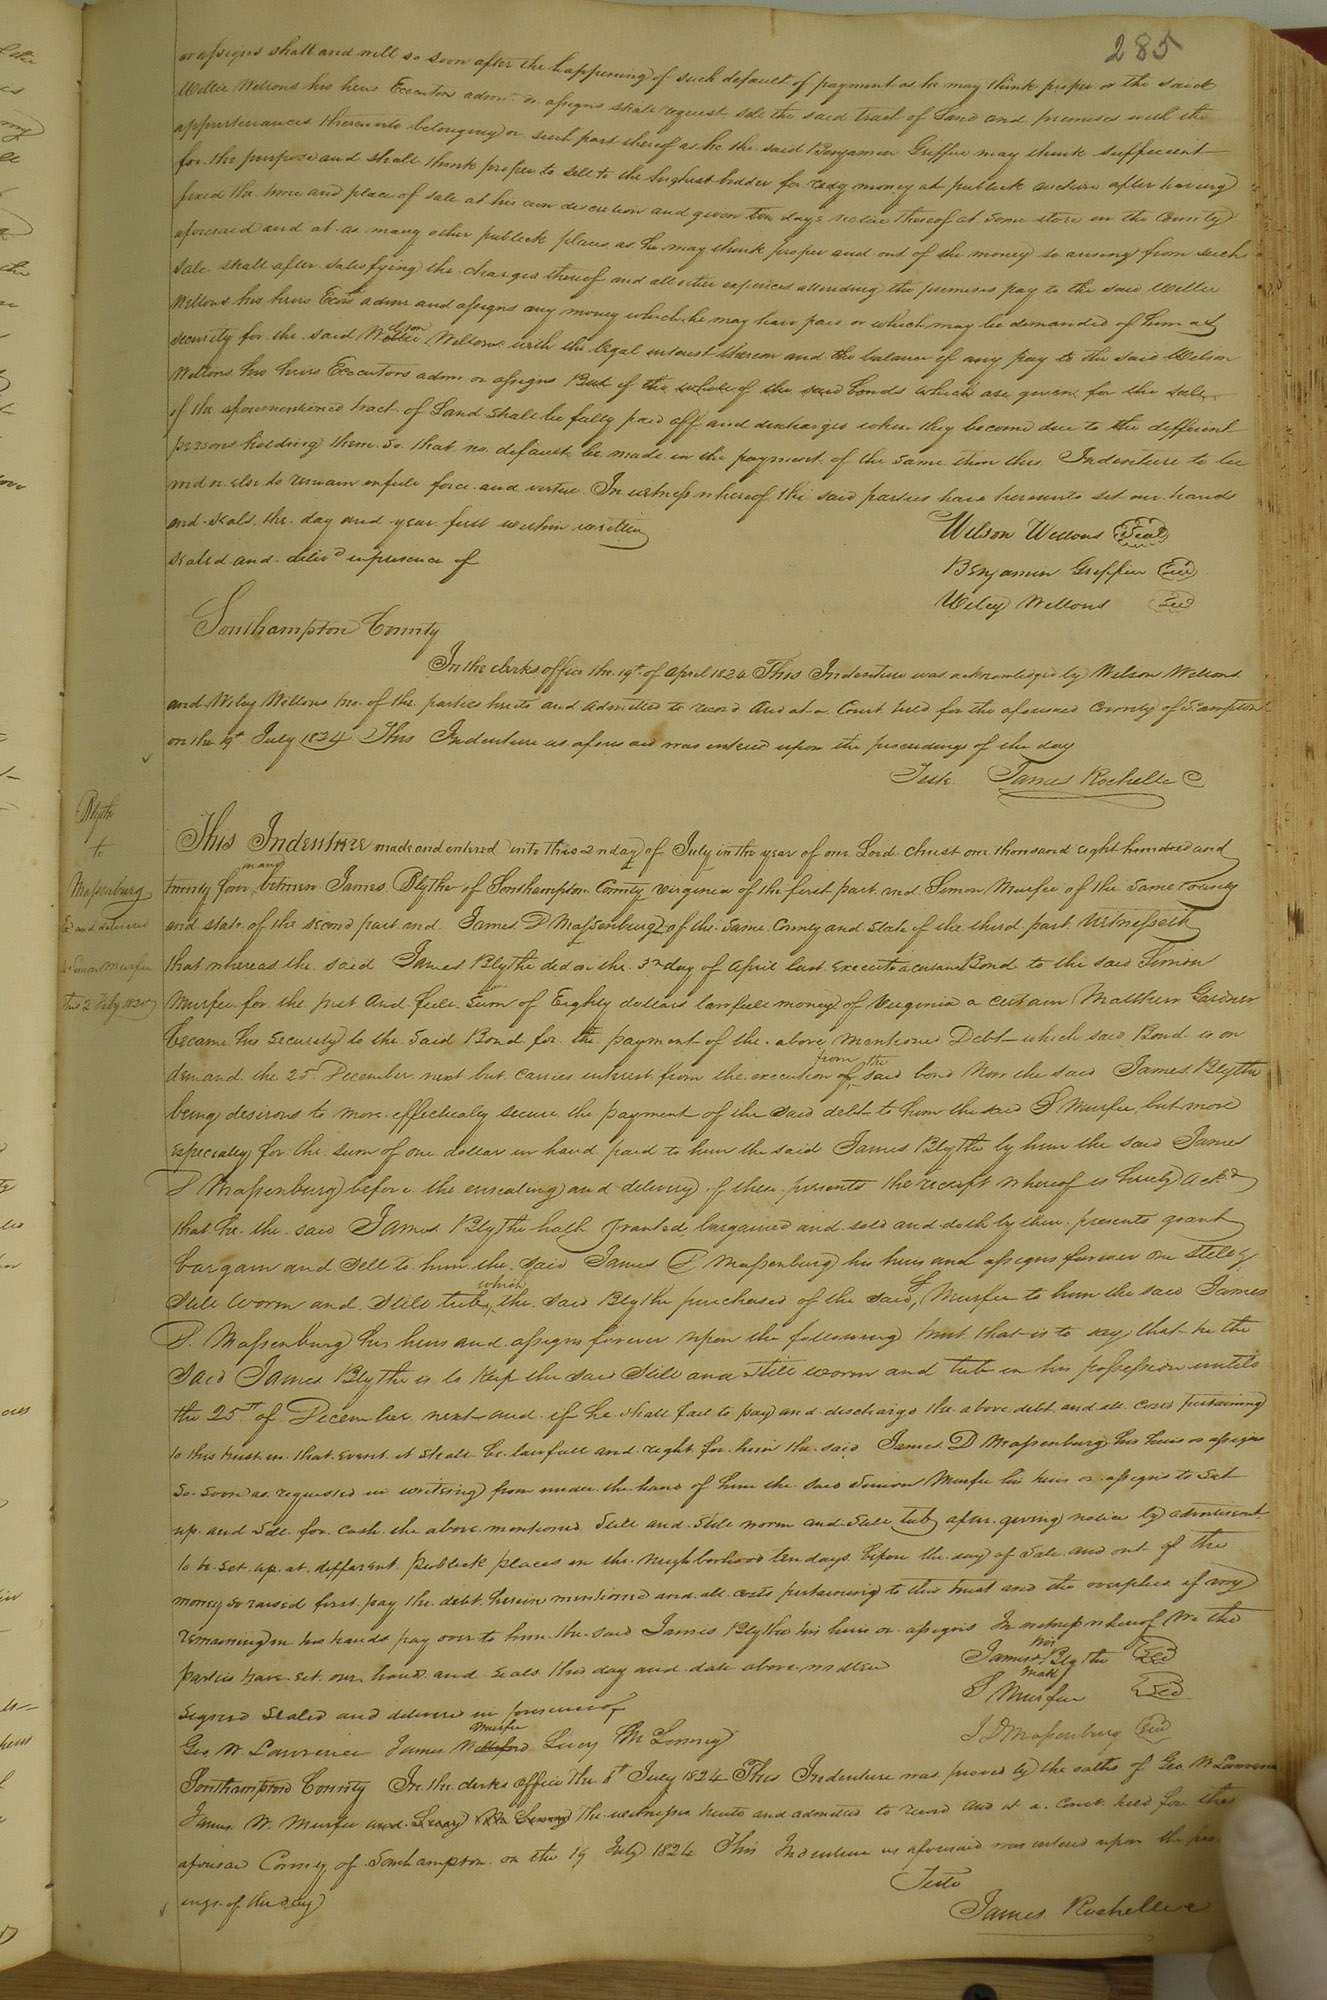 285
or assigns shall and will so soon after the happening of such default of payment as he may think proper or the said
Willie Wellons his heirs Executors admr. or assigns shall request sell the said tract of Land and premises with the
appurtenances thereunto belonging or such part thereof as he the said Benjamin Griffin may think sufficient
for the purpose and shall think proper to sell to the highest bidder for redy money at publick auction after having
fixed the time and place of sale at his own discretion and given ten days notice thereof at some store in the County
aforesaid and at as many other publick places as he may think proper and out of the money so arising from such
sale shall after satisfying the charges thereof and all other expences attending the premises pay to the said Willie
Wellons his heirs Exors admr and assigns any money which he may have paid or which may be demanded of him as
security for the said Wilson Wellons with the legal interest thereon and the balance if any pay to the said Wilson
Wellons his heirs Executors admr or assigns But if the whole of the said bonds which are given for the sale
of the aforementioned tract of Land shall be fully paid off and discharged when they become due to the different
persons holding them so that no default be made in the payment of the same then this Indenture to be
void or else to remain in full force and virtue In witness whereof the said parties have hereunto set our hands
and seals the day and year first within written
Wilson Wellons Seal
sealed and delivd in presence of
Benjamin Griffin Seal
Wiley Wellons Seal
Southampton County
In the clerks office the 19th of April 1824 This Indenture was acknowledged by Wilson Wellons
and Wiley Wellons two of the parties hereto and admitted to record And at a Court held for the aforesaid County of S'ampton
on the 19th July 1824 This Indenture as aforesaid was entered upon the proceedings of the day
Teste James Rochelle C
Blythe
to
Massenburg
Ex and delivered
to Simon Murfee
this 2 Feby 1825
This Indenture made and entered into this 2nd day of July in the year of our Lord Christ one thousand eight hundred and
twenty four between James Blythe of Southampton County Virginia of the first part and Simon Murfee of the same County
and state of the second part and James D Massenburg of the same County and State of the third part Witnesseth
that whereas the said James Blythe did on the 3rd day of April last execute a certain Bond to the said Simon
Murfee for the just and full sum of Eighty dollars lawfull money of Virginia a certain Matthew Gardner
became his Security to the said Bond for the payment of the above mentioned Debt which said Bond is on
demand the 25 December next but carries interest from the execution of from the said bond Now the said James Blythe
being desirous to more effectually secure the payment of the said debt to him the said S Murfee but more
especially for the sum of one dollar in hand paid to him the said James Blythe by him the said James
D Massenburg before the ensealing and delivery of these presents the receipt whereof is hereby ackd
that he the said James Blythe hath granted, bargained and sold and doth by these presents grant
bargain and sell to him the said James D Massenburg his heirs and assigns forever one Still &
Still Worm and Still tub, which the said Blythe purchased of the said S Murfee to him the said James
D. Massenburg his heirs and assigns forever upon the following trust that is to say that he the
said James Blythe is to keep the said Still and Still worm and tub in his possession untill
the 25th of December next and if he shall fail to pay and discharge the above debt and all costs pertaining
to this trust in that event it shall be lawfull and right for him the said James D Massenburg his heirs or assigns
so soon as requested in writing from under the hand of him the said Simon Murfee his heirs or assigns to set
up and sell for cash the above mentioned Still and Still worm and Still tub after giving notice by advertisement
to be set up at different publick places in the neighborhood ten days before the day of sale and out of the
money so raised first pay the debt herein mentioned and all costs pertaining to this trust and the overplus if any
remaining in his hands pay over to him the said James Blythe his heirs or assigns In witness whereof We the
parties have set our hands and seals this day and date above written
James his mark Blythe Seal
S Murfee Seal
signed sealed and delivered in presence of
J D Massenburg Seal
Geo W Lawrence James W Murfee Lucy
Southampton County In the clerks office the 6th July 1824 This Indenture was proved by the oaths of Geo. W Lawrence
James W. Murfee and the witnesses hereto and admitted to record And at a court held for the
aforesaid County of Southampton on the 19 July 1824 This Indenture as aforesaid was entered upon the pro
ings of the day
Teste
James Rochelle C